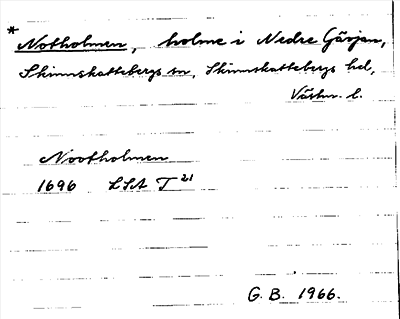 * Notholmen, holme i Nedre Gärjan,
Skinnskattebergs sn, Skinnskattebergs hd,
Västm. l.
Nootholmen
1696 LSA T 21
G. B. 1966.